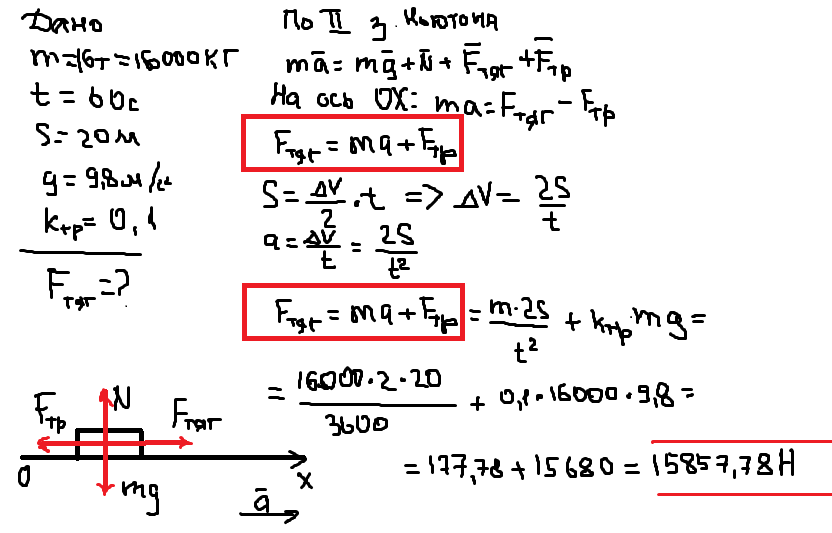 Дано
m=16т=16000кг
t=60с
S=20м
g=9,8м/с²
kтр=0,1
Fтяг=?
По II з. Ньютона
ma̅=mg̅+N̅+F̅тяг+F̅тр
На ось OX: ma=Fтяг-Fтр
Fтяг=ma+Fтр
S=ΔV/2·t => ΔV=2S/t
a=ΔV/t=2S/t²
Fтяг=ma+Fтр=m·2S/t²+kтр mg=
=16000·2·20/3600+0,1·16000·9,8=
=177,78+15680=15857,78Н
Fтр N Fтяг
0 mg x
a̅